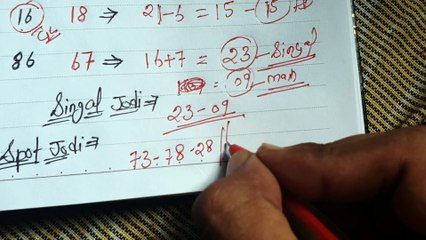 16 18 ⇒ 21-6 = 15 - 15
86 67 ⇒ 16+7 = 23 - Singal
= 09 - man
Singal Jodi ⇒ 23-09
Spot Jodi ⇒ 73-78-28 ||